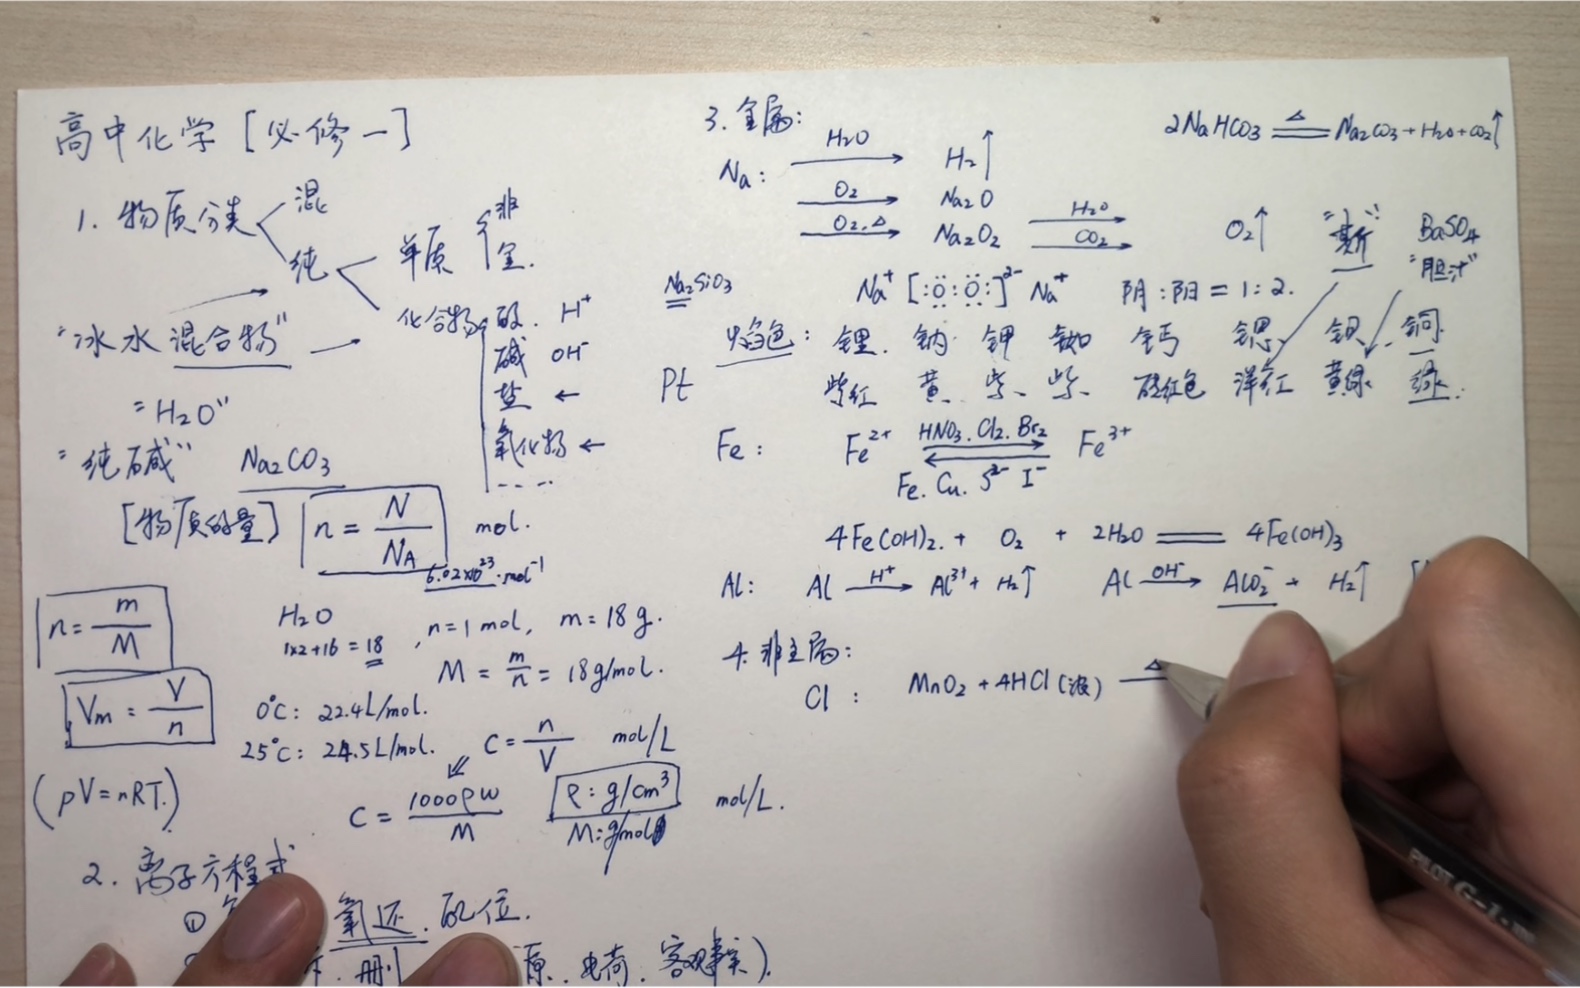 高中化学 [必修一]
1. 物质分类 混
纯 单质 非
金.
化合物 酸. H⁺
碱 OH⁻
盐 ←
氧化物 ←
----
"冰水混合物"
"H₂O"
"纯碱" Na₂CO₃
[物质的量] n = N/NA mol.
6.02×10²³·mol⁻¹
n = m/M
H₂O
1×2+16 = 18, n=1 mol, m=18g.
M = m/n = 18g/mol.
Vm = V/n
0°C: 22.4L/mol.
25°C: 24.5L/mol.
C = n/V mol/L
(pV=nRT.)
C = 1000ρw/M
ρ: g/cm³
M: g/mol
mol/L.
2. 离子方程式
①
氧还. 配位.
删
原. 电荷. 客观事实).
3. 金属:
2NaHCO₃ ==△== Na₂CO₃+H₂O+CO₂↑
Na: H₂O → H₂↑
O₂ → Na₂O
O₂.△ → Na₂O₂ H₂O → CO₂ → O₂↑
BaSO₄
"胆汁"
Na₂SiO₃
Na⁺ [:Ö:Ö:]²⁻ Na⁺ 阴:阳 = 1:2.
焰色: 锂. 钠. 钾 铷 钙 锶 钡 铜.
Pt 紫红 黄. 紫. 紫. 砖红色 洋红 黄绿 绿.
Fe: Fe²⁺ HNO₃.Cl₂.Br₂ ⇌ Fe³⁺
Fe. Cu. S²⁻ I⁻
4Fe(OH)₂. + O₂ + 2H₂O == 4Fe(OH)₃
Al: Al H⁺ → Al³⁺ + H₂↑ Al OH⁻ → AlO₂⁻ + H₂↑ [
4. 非金属:
Cl: MnO₂ + 4HCl(浓) △
PILOT G-1